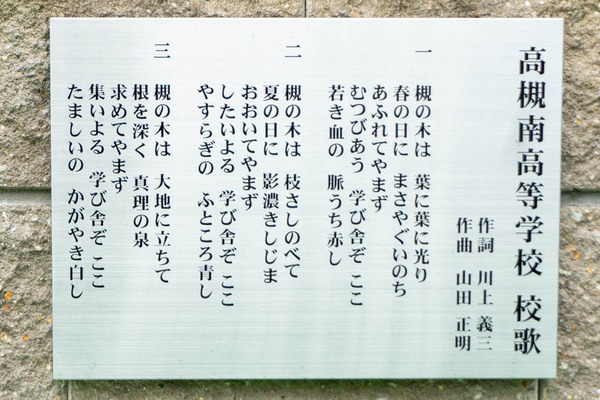 高槻南高等学校 校歌
作詞 川上 義三
作曲 山田 正明
一
槻の木は 葉に葉に光り
春の日に まさやぐいのち
あふれてやまず
むつびあう 学び舎ぞ ここ
若き血の 脈うち赤し
二
槻の木は 枝さしのべて
夏の日に 影濃きしじま
おおいてやまず
したいよる 学び舎ぞ ここ
やすらぎの ふところ青し
三
槻の木は 大地に立ちて
根を深く 真理の泉
求めてやまず
集いよる 学び舎ぞ ここ
たましいの かがやき白し